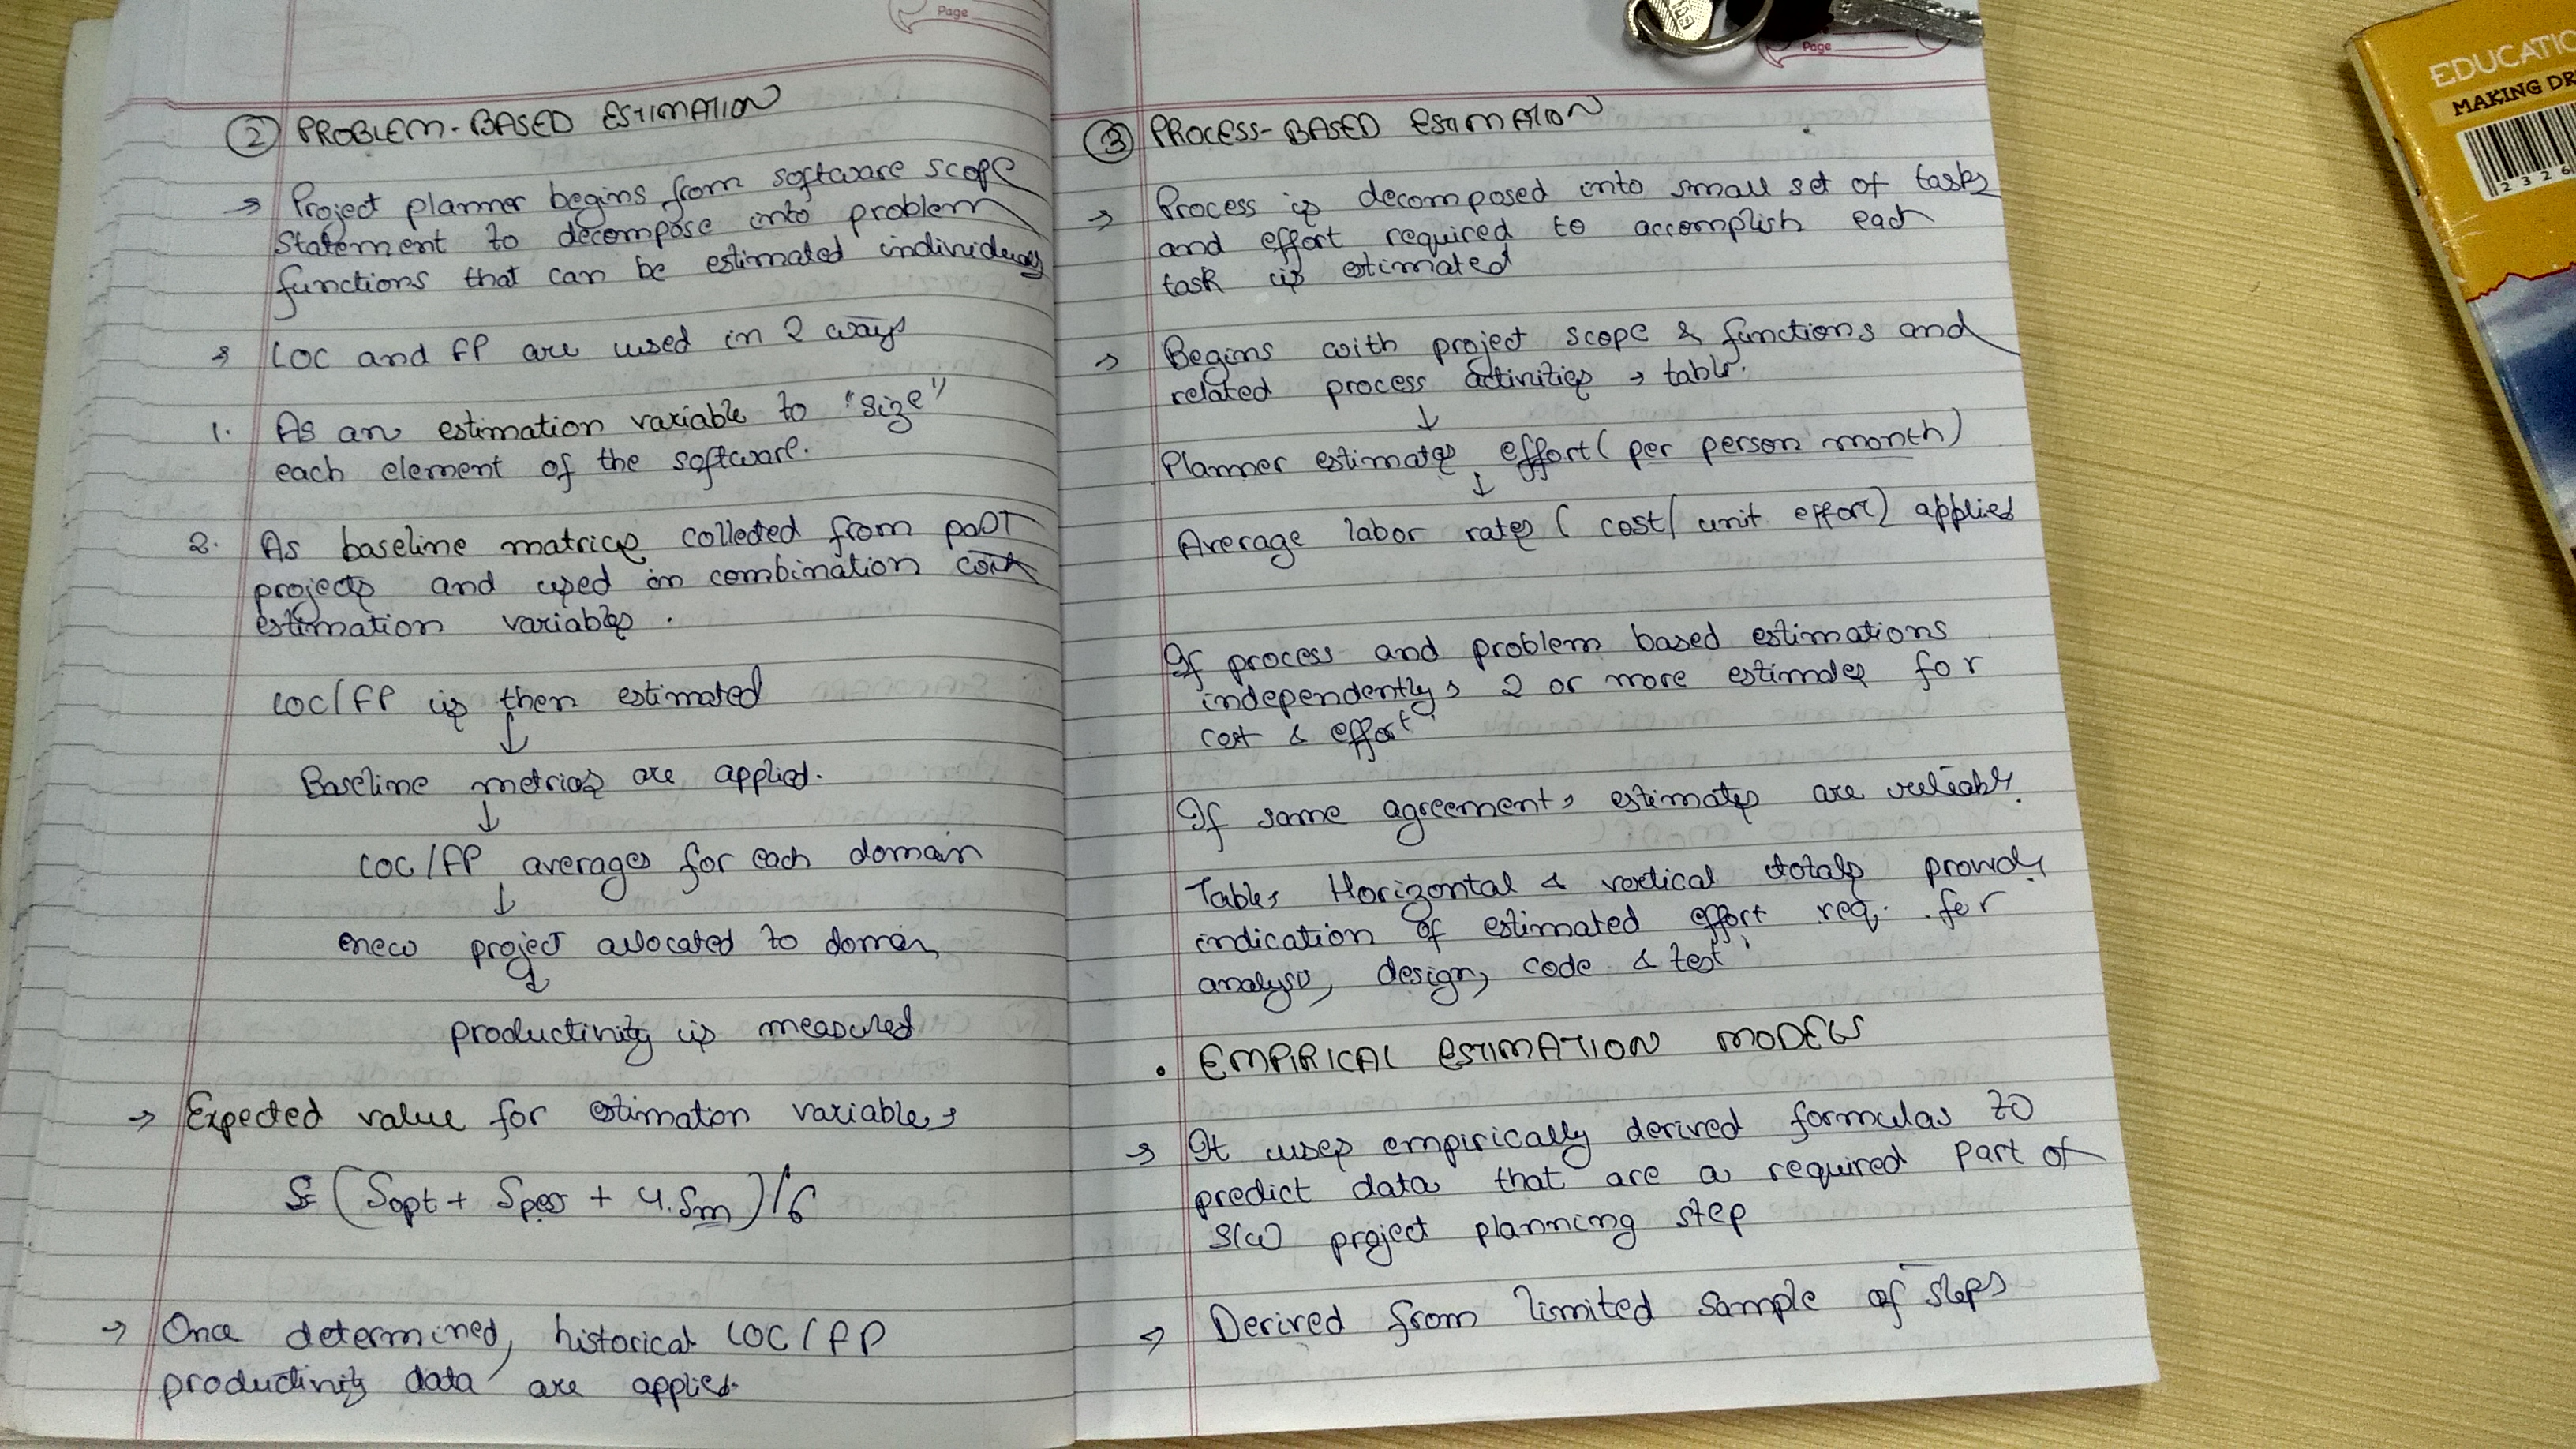 Page
② PROBLEM-BASED ESTIMATION
→ Project planner begins from software scope
statement to decompose into problem
functions that can be estimated individually
→ LOC and FP are used in 2 ways
1. As an estimation variable to "size"
each element of the software.
2. As baseline matrics collected from past
projects and used in combination with
estimation variables.
LOC/FP is then estimated
↓
Baseline metrics are applied.
↓
LOC/FP averages for each domain
↓
new project allocated to domain
↓
productivity is measured
→ Expected value for estimaton variable,
S= (Sopt + Spes + 4.Sm)/6
→ Once determined, historical LOC/FP
productivity data are applied.
Page
③ PROCESS-BASED ESTIMATION
→ Process is decomposed into small set of tasks
and effort required to accomplish each
task is estimated
→ Begins with project scope & functions and
related process activities → table.
↓
Planner estimates effort (per person month)
↓
Average labor rates (cost/unit effort) applied
If process and problem based estimations
independently, 2 or more estimates for
cost & effort
If same agreement, estimates are reliable.
Table, Horizontal & vertical totals provide
indication of estimated effort req. for
analysis, design, code & test
• EMPIRICAL ESTIMATION MODELS
→ It uses empirically derived formulas to
predict data that are a required part of
S/W project planning step
→ Derived from limited sample of steps
EDUCATIO
MAKING DR
2 3 2 6